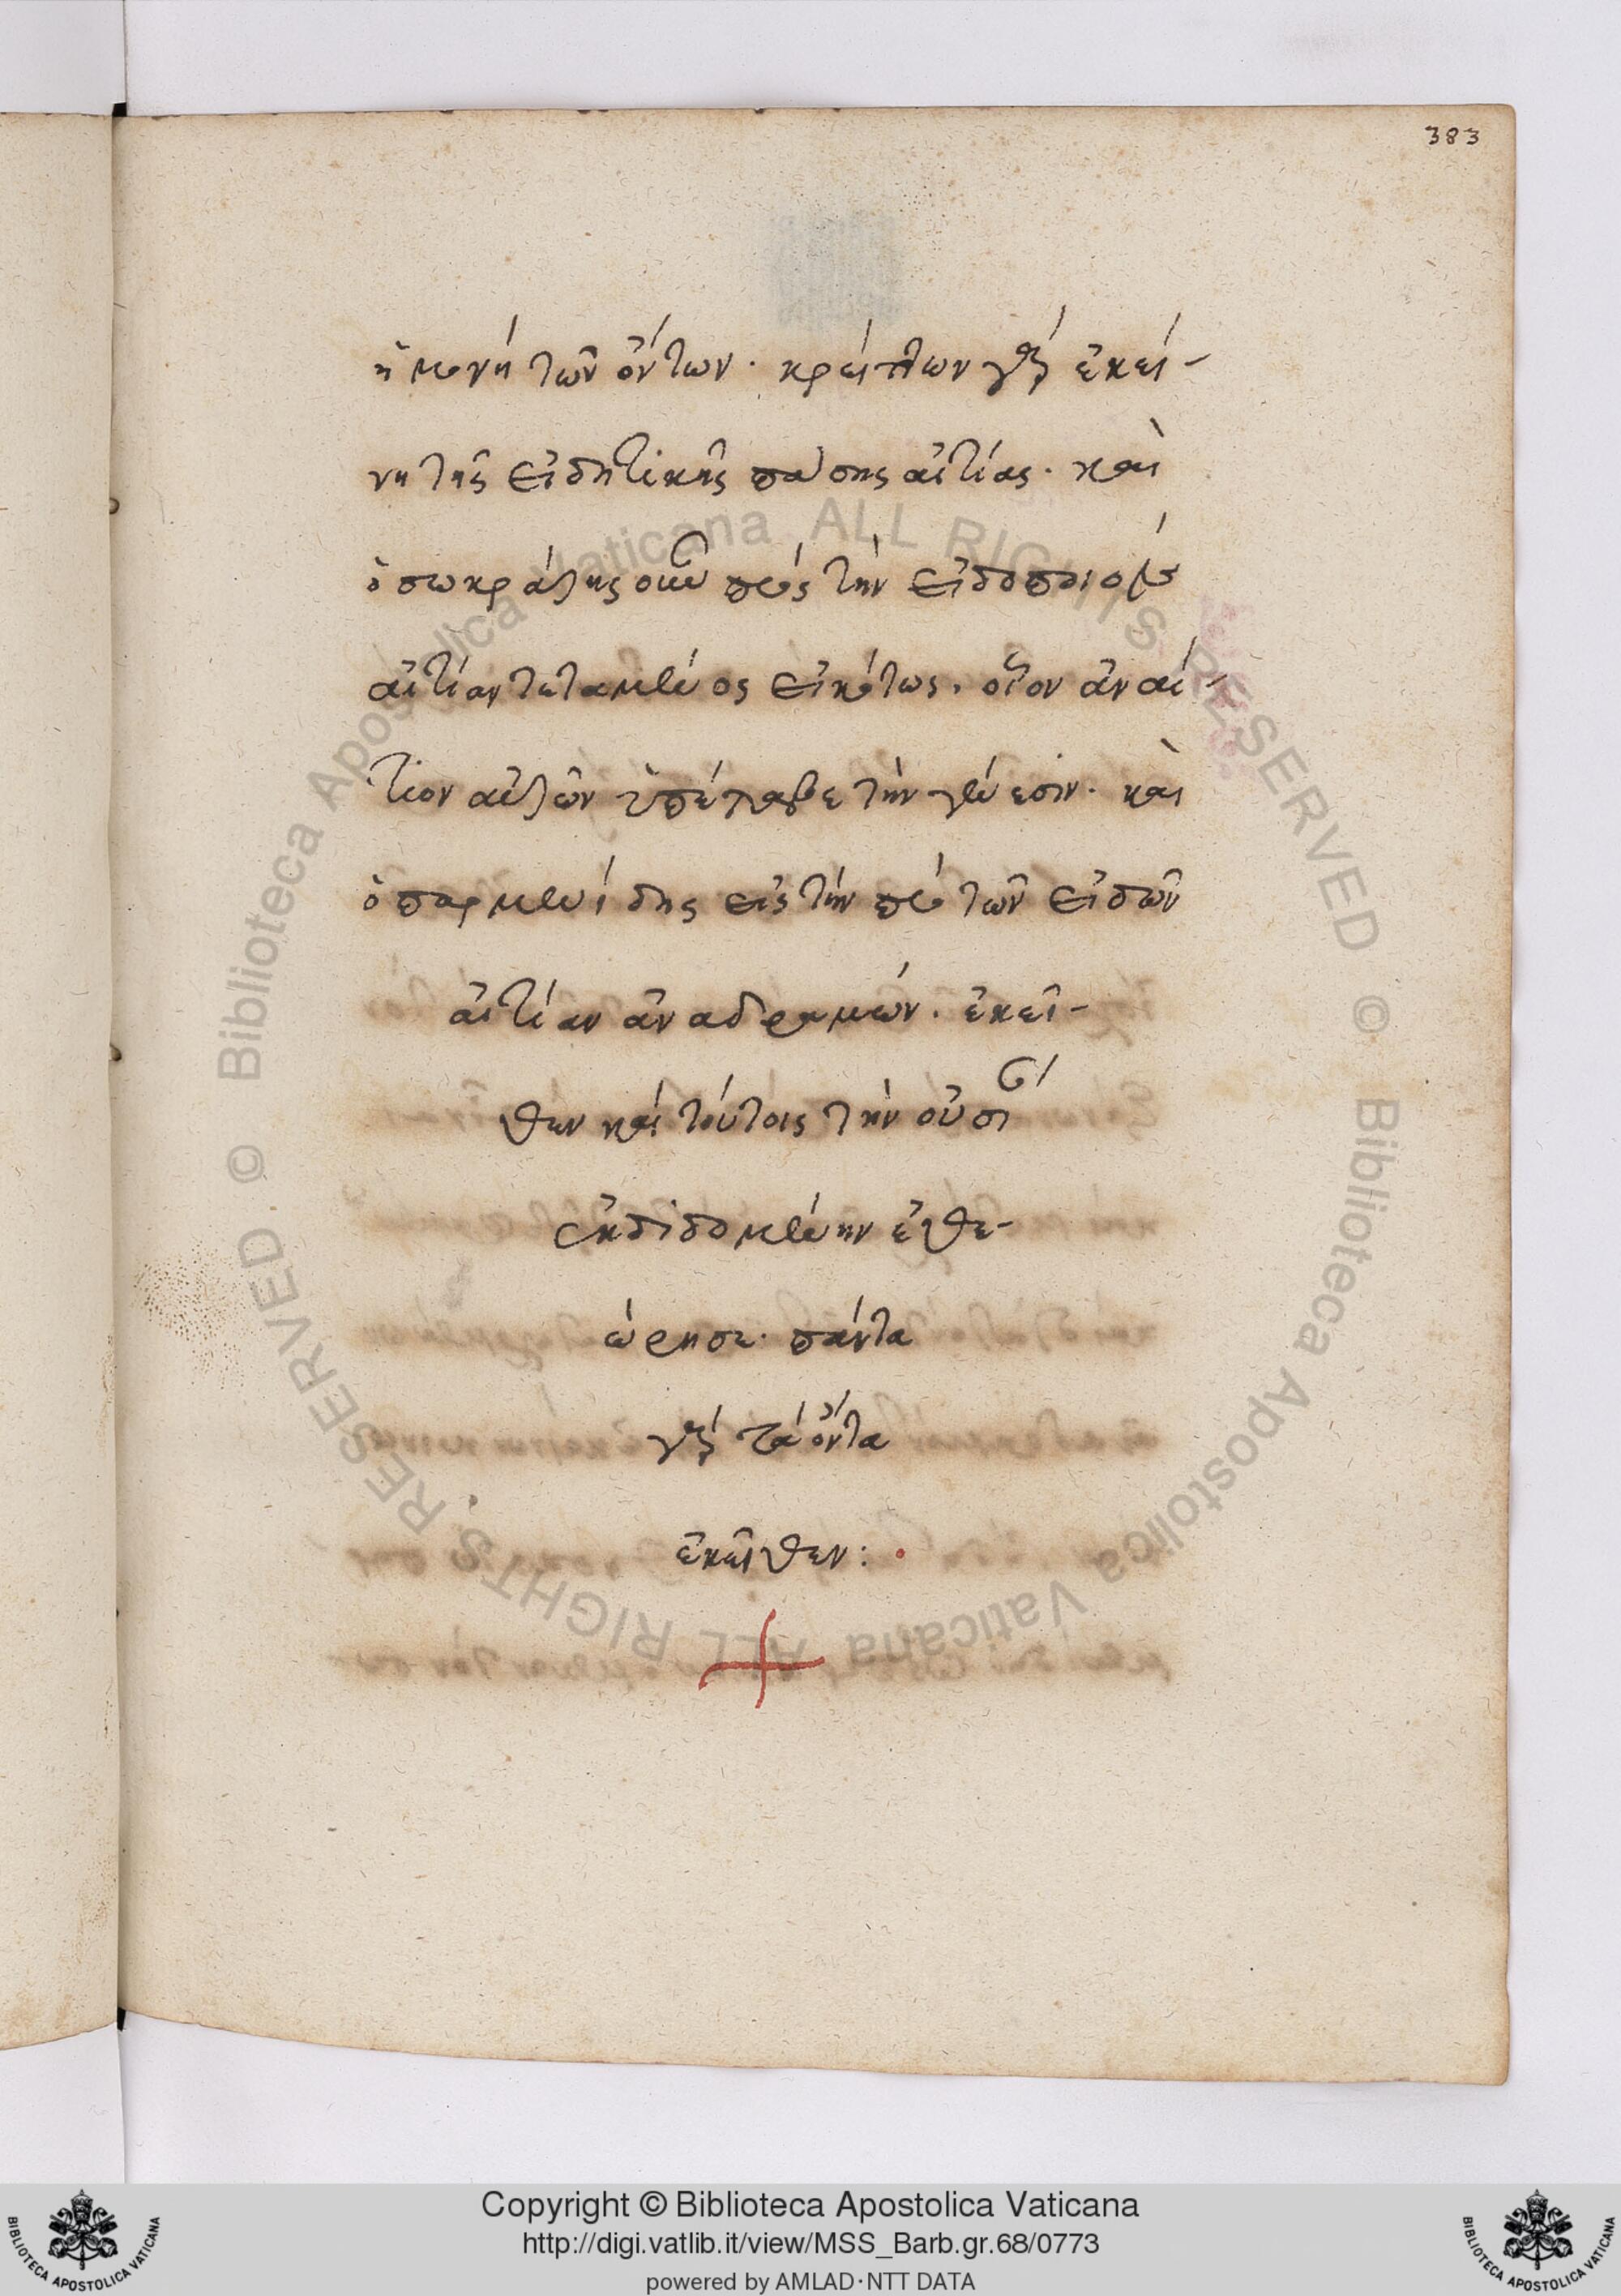 383
ἡ μονὴ τῶν ὄντων· κρείττων γὰρ ἐκεί-
νη τῆς εἰδητικῆς πάσης αἰτίας· καὶ
ὁ σωκράτης οὖν πρὸς τὴν εἰδοποιὸν
αἰτίαν τεταμένος εἰκότως. οἷον ἀναί-
τιον αὐτῶν ὑπέλαβε τὴν γένεσιν· καὶ
ὁ παρμενίδης εἰς τὴν πρὸ τῶν εἰδῶν
αἰτίαν ἀναδραμών. ἐκεῖ-
θεν καὶ τούτοις τὴν οὐσίαν
ἐκδιδομένην ἐθε-
ώρησε· πάντα
γὰρ τὰ ὄντα
ἐκεῖθεν:
© Biblioteca Apostolica Vaticana ALL RIGHTS RESERVED © Biblioteca Apostolica Vaticana ALL RIGHTS RESERVED
Copyright © Biblioteca Apostolica Vaticana
http://digi.vatlib.it/view/MSS_Barb.gr.68/0773
powered by AMLAD·NTT DATA
BIBLIOTECA APOSTOLICA VATICANA
BIBLIOTECA APOSTOLICA VATICANA